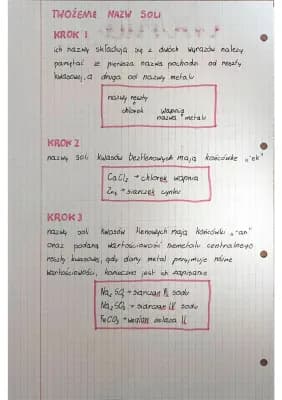 TWOŻEME NAZW SOLI
KROK 1
ich nazwy składają się z dwóch wyrazów należy
pamiętać że pierwsza nazwa pochodzi od reszty
kwasowej, a druga od nazwy metalu
nazwy reszty
chlorek wapnia
nazwa metalu
KROK 2
nazwy soli kwasów beztlenowych mają końcówkę "ek"
CaCl₂ → chlorek wapnia
ZnS → siarczek cynku
KROK 3
nazwy soli kwasów tlenowych mają końcówki "an"
oraz podaną wartościowość niemetalu centralnego
reszty kwasowej, gdy dany metal przyjmuje różne
wartościowości, konieczna jest ich zapisanie
Na₂SO₄ → siarczan VI sodu
Na₂SO₃ → siarczan IV sodu
FeCO₃ → węglan żelaza II